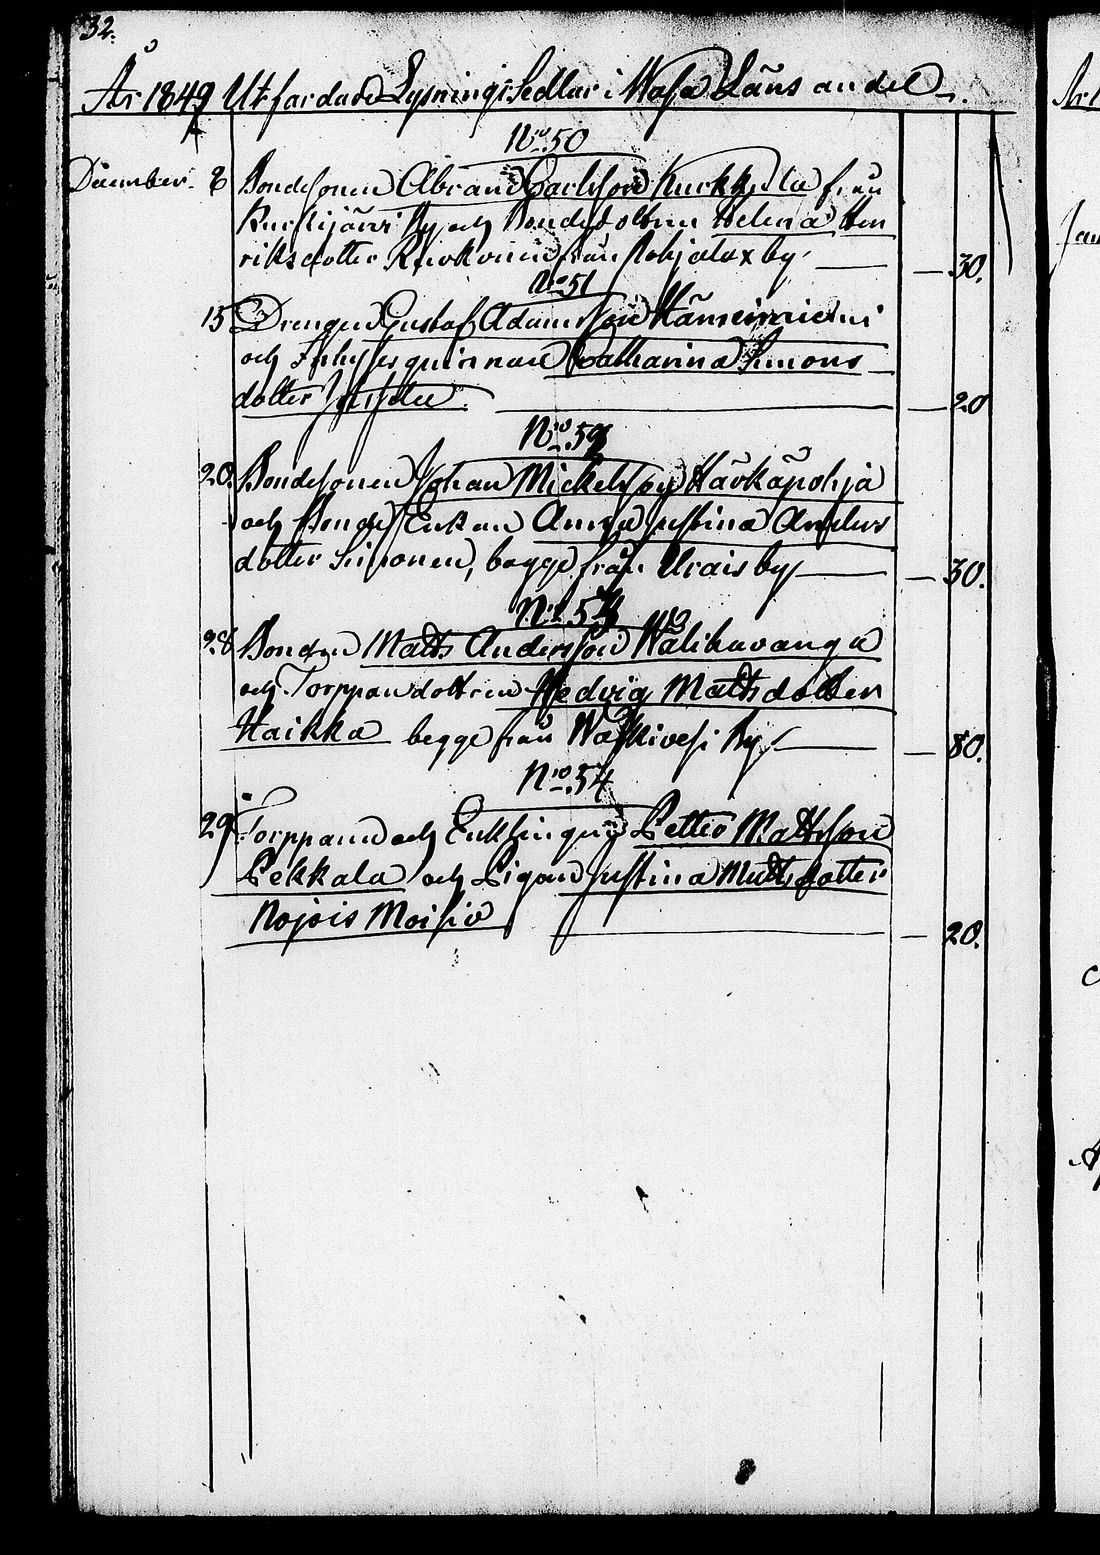 32.
År 1849 Utfärdade Lysnings Sedlar i Wasa Läns andel
No. 50
December. 8 Bondesonen Abram Carlsson Kurkkylä från
by och Bondedottren Helena Hen
riksdotter från Pohjalax by 30.
No. 51
15 Drengen Gustaf Adamsson Hämeinniemi
och Inhyses quinnan Catharina Simons
dotter 20
No. 52
20. Bondesonen Johan Mickelsson Härkäpohja
och Bonde Enkan Anna Justina Anders
dotter Simonen, begge från Urais by 30.
No. 53
28 Bonden Matts Andersson Walikavanga
och Torppare dottren Hedvig Mattsdotter
Haikka begge från Waskivesi By 80.
No. 54
29 Torpparen och Enklingen Petter Mattsson
Pekkala och Pigan Justina Mattsdotter
Nojois Moisio 20.